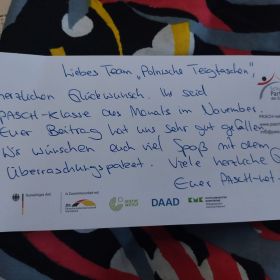 Liebes Team „Polnische Teigtaschen“
herzlichen Glückwunsch. Ihr seid
PASCH-Klasse des Monats im November.
Euer Beitrag hat uns sehr gut gefallen.
Wir wünschen euch viel Spaß mit dem
Überraschungspaket. Viele herzliche
Euer PASCH-
Auswärtiges Amt
GOETHE INSTITUT
DAAD